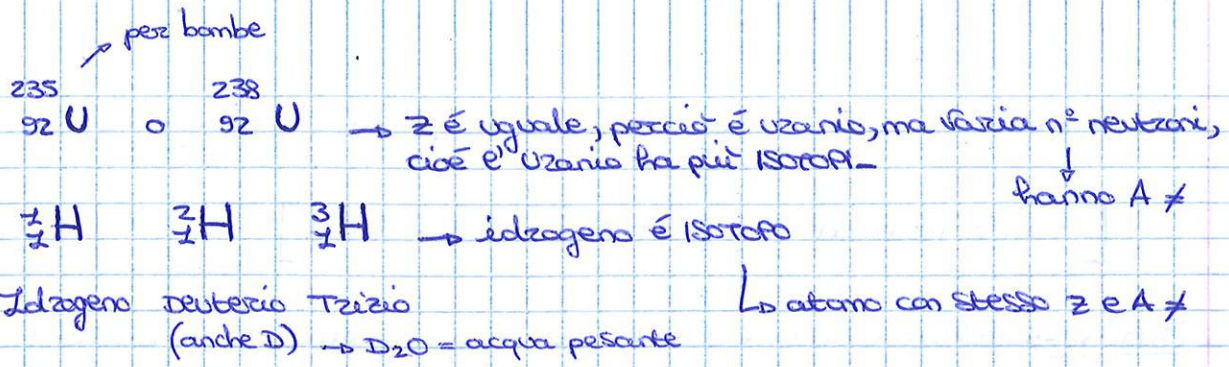 per bombe
²³⁵₉₂U o ²³⁸₉₂U → Z é uguale, perció é uranio, ma varia n° neutroni,
cioé l'uranio ha piú ISOTOPI_
↓
hanno A ≠
¹₁H ²₁H ³₁H → idrogeno é ISOTOPO
Idrogeno Deuterio Trizio ↳ atomo con stesso Z e A ≠
(anche D) → D₂O = acqua pesante